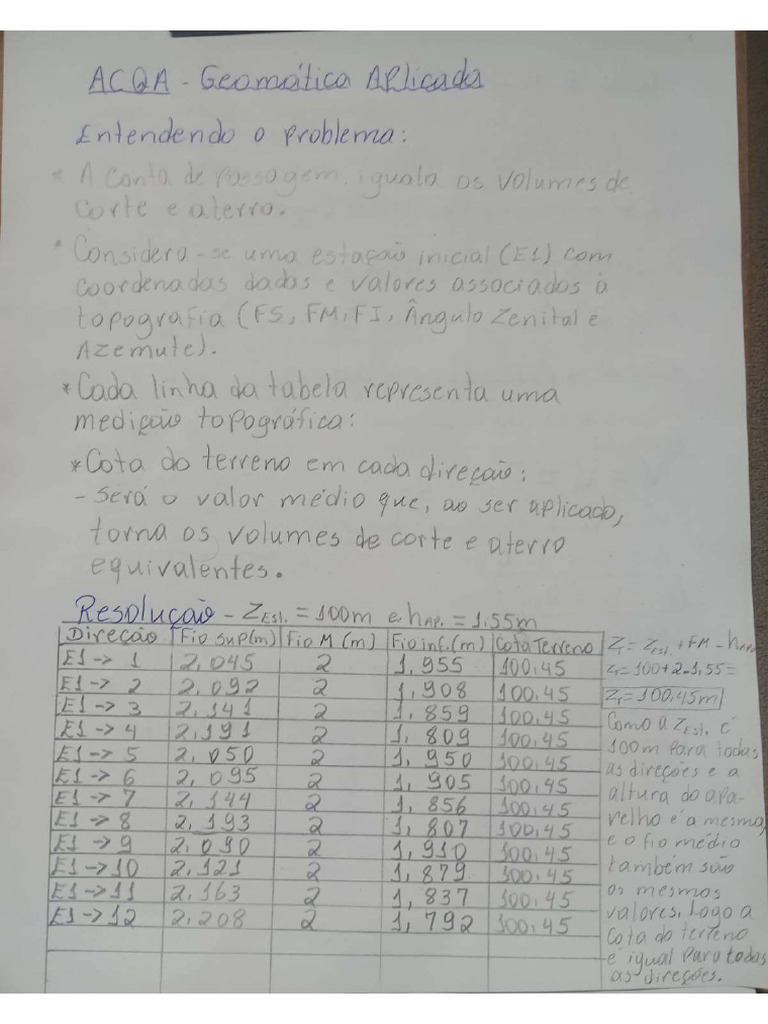 ACQA - Geomática Aplicada
Entendendo o problema:
* A Conta de Passagem, iguala os volumes de
corte e aterro.
* Considera-se uma estação inicial (E1) com
coordenadas dadas e valores associados à
topografia (FS, FM, FI, Ângulo Zenital e
Azemute).
* Cada linha da tabela representa uma
medição topográfica:
* Cota do terreno em cada direção:
- Será o valor médio que, ao ser aplicado,
torna os volumes de corte e aterro
equivalentes.
Resolução - ZEst. = 100m e hAP. = 1,55m
Direção Fio Sup(m) Fio M (m) Fio inf.(m) Cota Terreno
E1 -> 1 2,045 2 1,955 100,45
E1 -> 2 2,092 2 1,908 100,45
E1 -> 3 2,141 2 1,859 100,45
E1 -> 4 2,191 2 1,809 100,45
E1 -> 5 2,050 2 1,950 100,45
E1 -> 6 2,095 2 1,905 100,45
E1 -> 7 2,144 2 1,856 100,45
E1 -> 8 2,193 2 1,807 100,45
E1 -> 9 2,090 2 1,910 100,45
E1 -> 10 2,121 2 1,879 100,45
E1 -> 11 2,163 2 1,837 100,45
E1 -> 12 2,208 2 1,792 100,45
ZT = ZEst. + FM - hAP.
ZT = 100 + 2 - 1,55 =
ZT = 100,45m
Como a ZEst. é
100m para todas
as direções e a
altura do apa-
relho é a mesma,
e o fio médio
também são
os mesmos
valores, logo a
cota do terreno
é igual para todas
as direções.